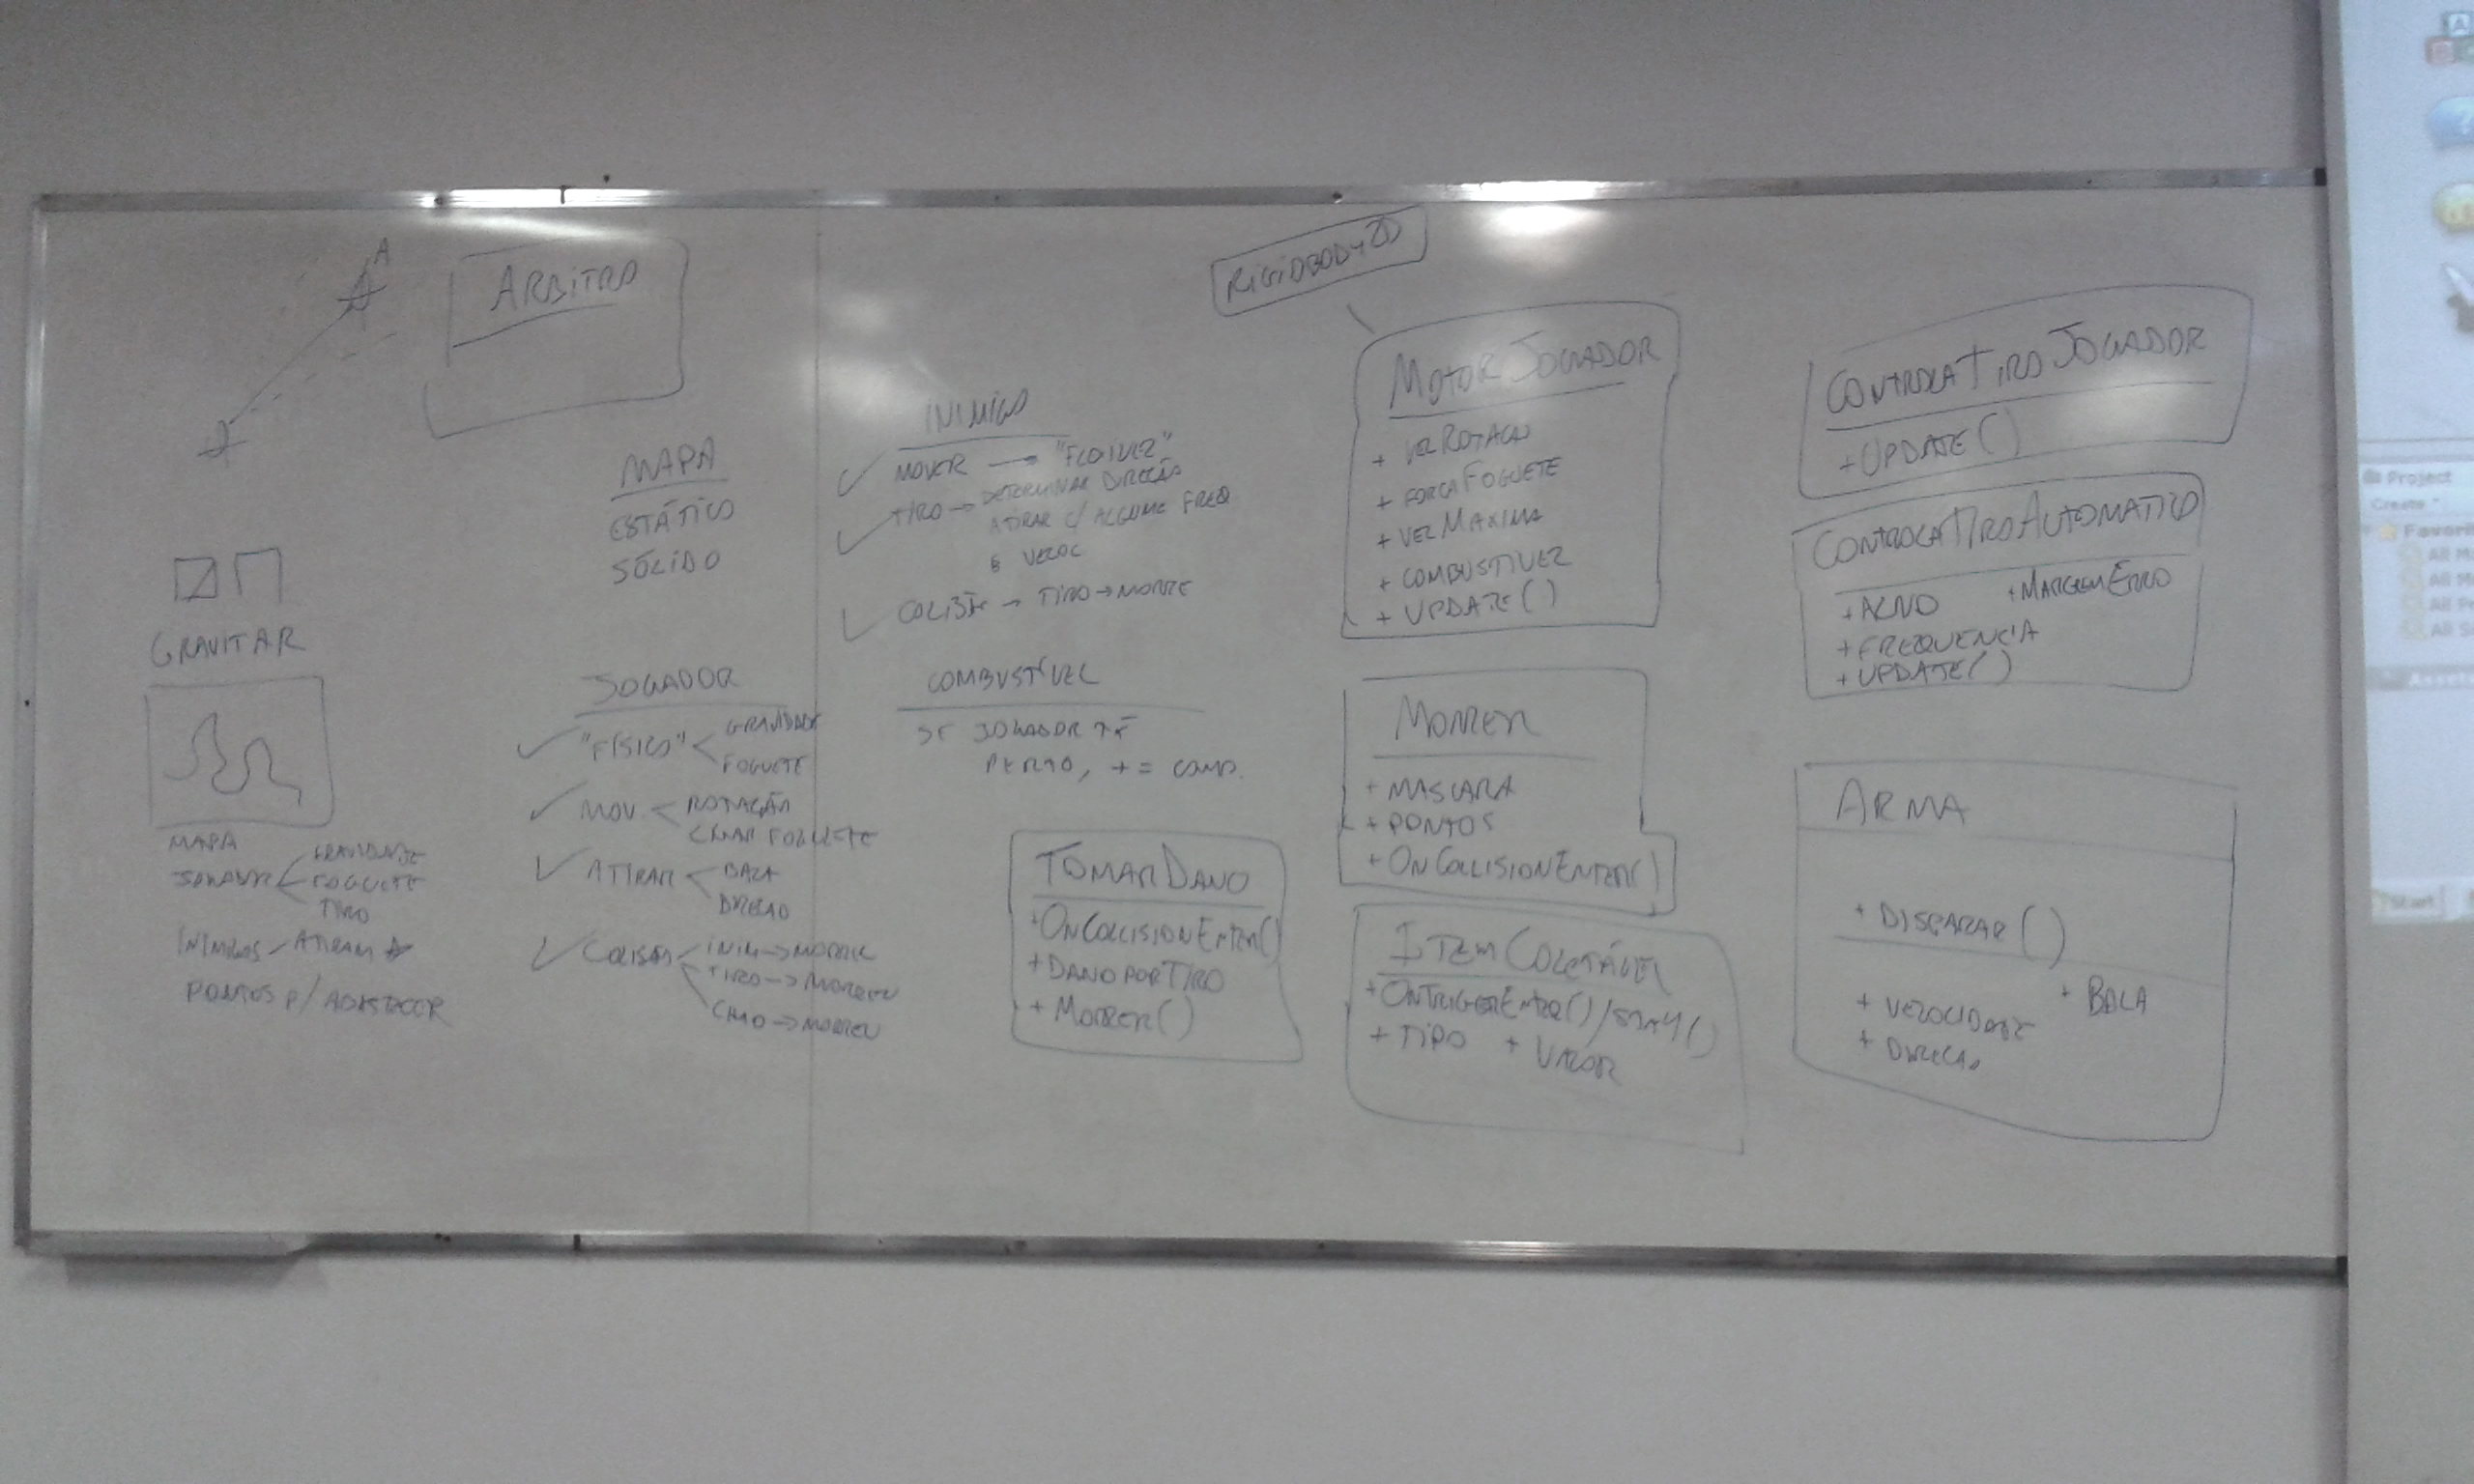 A
ARBITRO
GRAVITAR
MAPA
JOGADOR
GRAVIDADE
FOGUETE
TIRO
INIMIGOS
ATIRAM
PONTOS P/ ABASTECER
MAPA
ESTÁTICO
SÓLIDO
JOGADOR
"FÍSICO"
GRAVIDADE
FOGUETE
MOV.
ROTAÇÃO
FOGUETE
ATIRAR
BALA
DIREÇAO
COLISÃO
INIM → MORREU
TIRO → MORREU
CHÃO → MORREU
INIMIGO
MOVER →
TIRO → DETERMINAR DIREÇÃO
ATIRAR C/ ALGUMA FREQ
E VELOC
COLISÃO → TIRO → MORRE
COMBUSTÍVEL
SE JOGADOR
PERTO, += COMB.
TOMARDANO
+ ONCOLLISIONENTER()
+ DANOPORTIRO
+ MORRER()
RIGIDBODY2D
MOTORJOGADOR
+ VELROTACAO
+ FORCAFOGUETE
+ VELMAXIMA
+ COMBUSTIVEL
+ UPDATE()
MORRER
+ MASCARA
+ PONTOS
+ ONCOLLISIONENTER()
ITEMCOLETÁVEL
+ ONTRIGGERENTER()/STAY()
+ TIPO + VALOR
CONTROLATIROJOGADOR
+ UPDATE()
CONTROLATIROAUTOMATICO
+ ALVO + MARGEMERRO
+ FREQUENCIA
+ UPDATE()
ARMA
+ DISPARAR()
+ VELOCIDADE + BALA
+ DIRECAO
Project
Create
Favorit
All M
All M
All
All S
Assets
Start